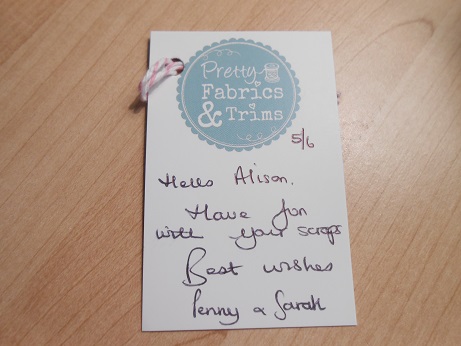 Pretty
Fabrics
& Trims
5/6
Hello Alison.
Have fun
with your scraps
Best wishes
Penny & Sarah